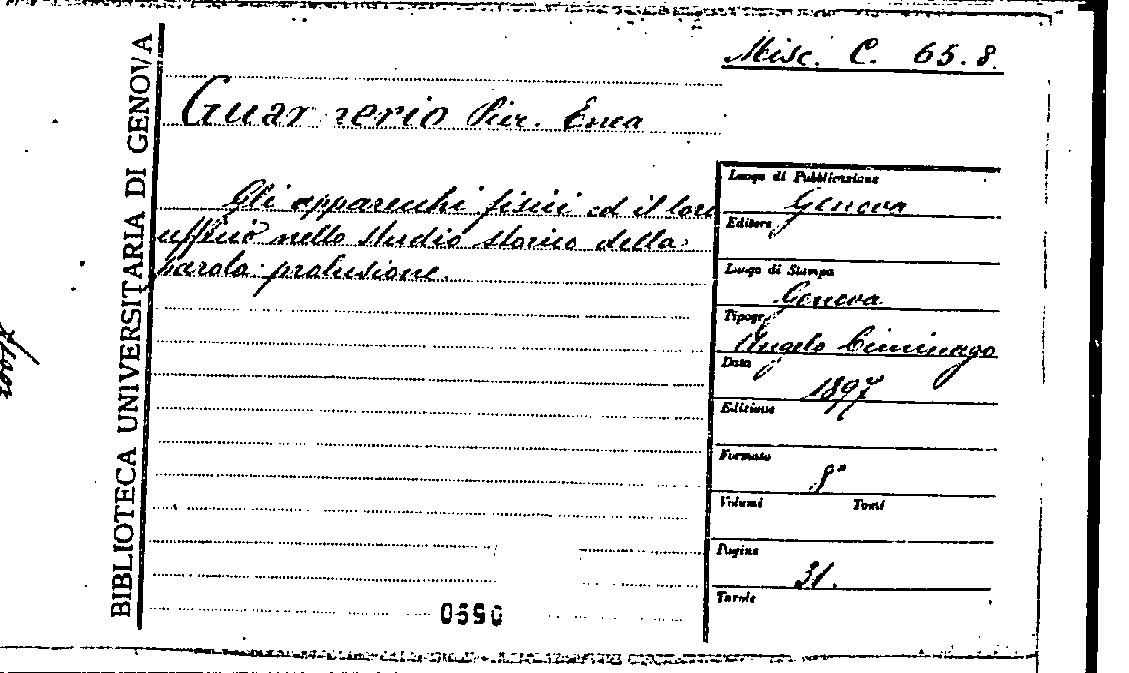 Misc. C. 65.8.
Guarnerio Pier. Enea
Gli apparecchi fisici ed il loro
ufficio nello studio storico della
parola: prolusione.
BIBLIOTECA UNIVERSITARIA DI GENOVA
Luogo di Pubblicazione
Genova
Editore
Luogo di Stampa
Genova
Tipogr.
Angelo Ciminago
Data
1897
Edizione
Formato
8°
Volumi Tomi
Pagine
31.
Tavole
0590